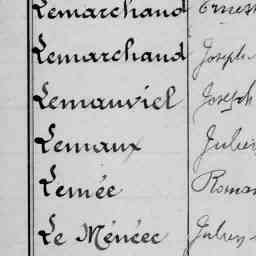 Lemarchand Ernest
Lemarchand Joseph
Lemauviel Joseph
Lemaux Julien
Lemée Roman
Le Ménéec Julien